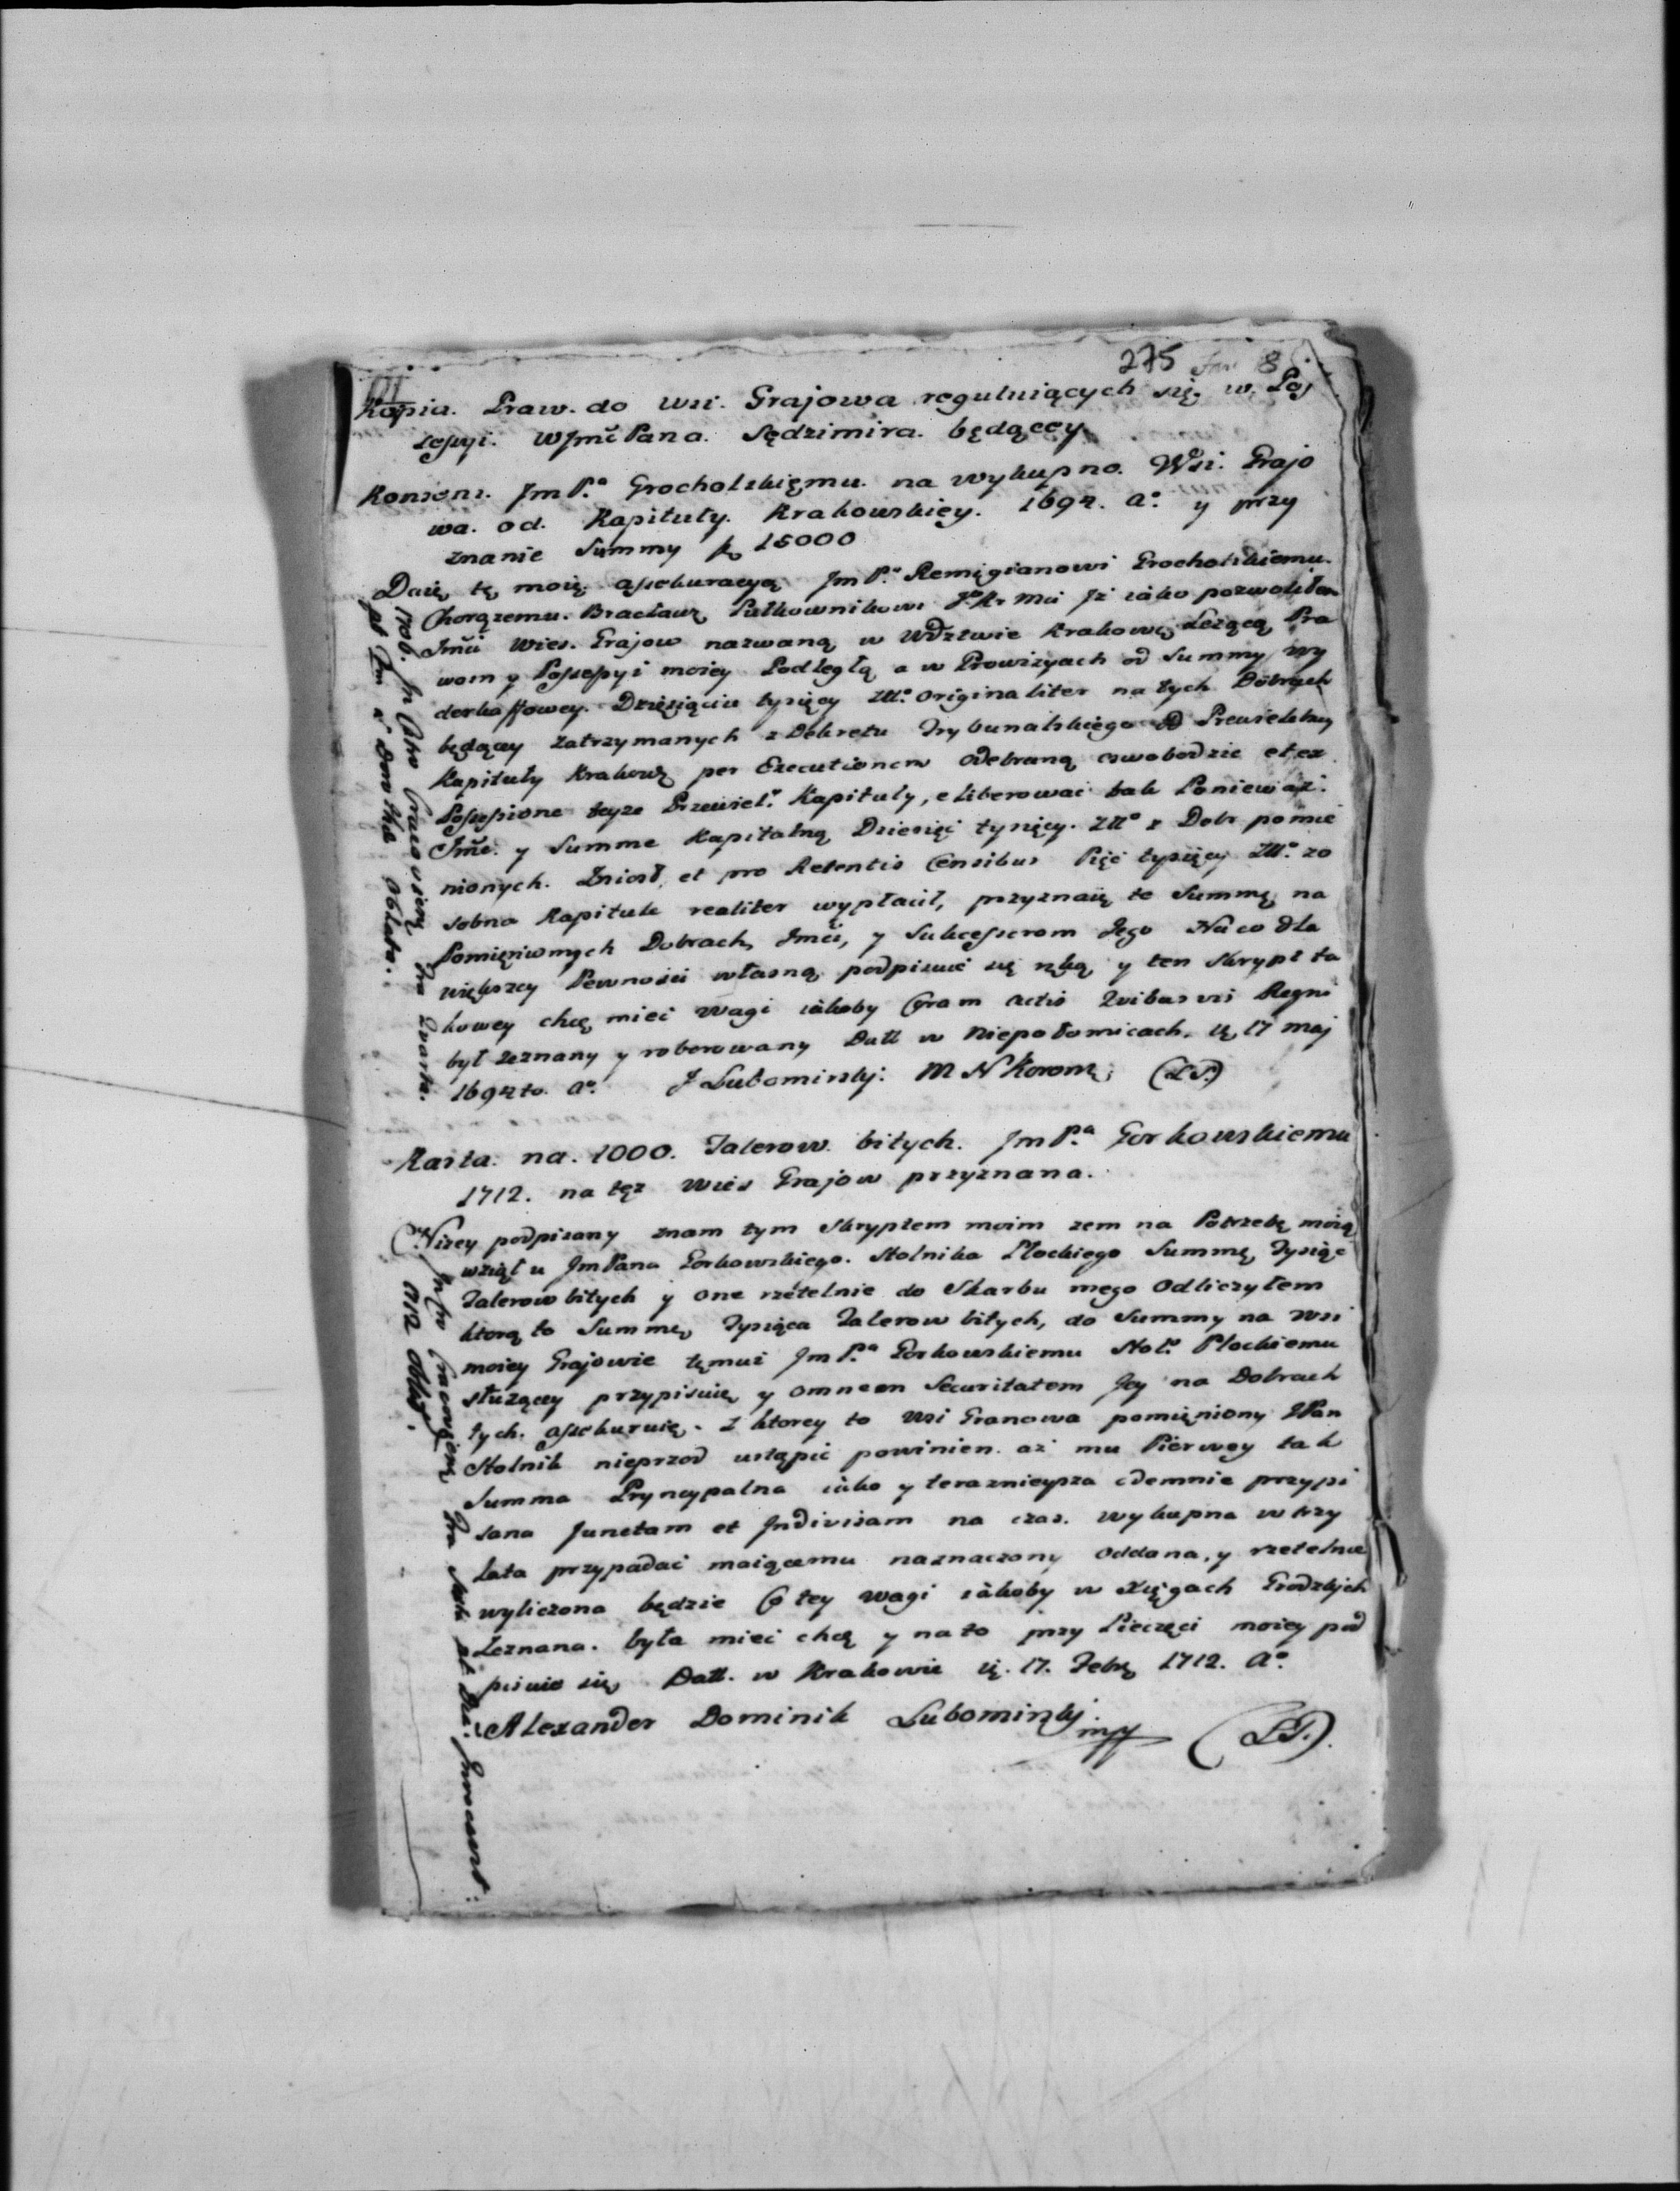 275 8
Kopia. Praw. do wsi. Grajowa regulniących się. w. Pos
sessyi. WJmć Pana. Sędzimira. będącey
Konsens. Jm P.ª Grocholskięmu. na wykupno. Wsi. Grajo
wa. od. Kapituły. Krakowskiey. 1694. a.º y przy
znanie Summy 15000
Daię tę moię assekuracyą Jm P.ª Remigianowi Grocholskiemu.
Chorązemu. Bracławę Pułkownikowi J. K. Mci Jż iako pozwoliłem
Jmći Wies. Grajow nazwaną w Wdztwie Krakowę Lezącą Pra
wom y Possessyi moiey Podległą a w Prowizyach od Summy wy
derkaffowey. Dziesiąciu tysięcy Zll.º originaliter na tych Dobrach
będącey zatrzymanych z Dekretu Trybunalskiego od Prewielebney
Kapituły Krakowę per Executionem odebraną oswobodzic et ex
Possessione teyze Przewiel.ª Kapituły, eliberować tak Ponieważ.
Jmć. y Summe Kapitalną Dziesięć tysięcy. Zll.º z Dobr pomie
nionych. Zniosł, et pro Retentis Censibus Pięć tysięcy Zll.º zo
sobna Kapitule realiter wypłacił, przyznaię te Summę na
Pomięnionych Dobrach Jmći, y Sukcessorom Jego Na co dla
większey Pewności własną podpisuię się ręką y ten Skrypt ta
kowey chcę mieć wagi iakoby Coram Actis Quibusvis Regni
był zeznany y roborowany Datt w Niepołomicach. 17 maj
1694to. a.º J Lubomirsky: M N Koronę (LS.)
1706. In Cstro Cracovien Fra 2 varta.
pt Dm Oblata.
Karta. na. 1000. Talerow. bitych. Jm P.ª Gorkowskiemu
1712. na tęz Wies Grajow przyznana.
Nizey podpisany znam tym Skryptem moim zem na Potrzebę moię
wziął u JmPana Gorkowskiego. Stolnika Płockiego Summę Tysiąc
Talerow bitych y one rzetelnie do Skarbu mego Odliczyłem
ktorą to Summę Tysiąca Talerow bitych, do Summy na Wsi
moiey Grajowie tęmuż Jm P.ª Gorkowskiemu Stol.º Płockiemu
służącey przypisuię y omnem Securitatem Jey na Dobrach
tych. assekuruię. z ktorey to Wsi Granowa pomięniony JPan
Stolnik nieprzod ustąpić powinien. aż mu Pierwey tak
Summa Pryncypalna iako y teraznieysza odemnie przypi
sana Junctam et Indivisam na czas. wykupna w trzy
lata przypadać maiącemu naznaczony oddana, y rzetelnie
wyliczona będzie Co tey wagi iakoby w Xięgach Grodzkich
Zeznana. była mieć chcę y na to przy Pieczęci moiey pod
pisuię się Datt. w Krakowie 17. Febrę 1712. a.º
Alexander Dominik Lubomirsky. mpp (LS.)
In Cstro Cracovien Fra
1712 Oblat.